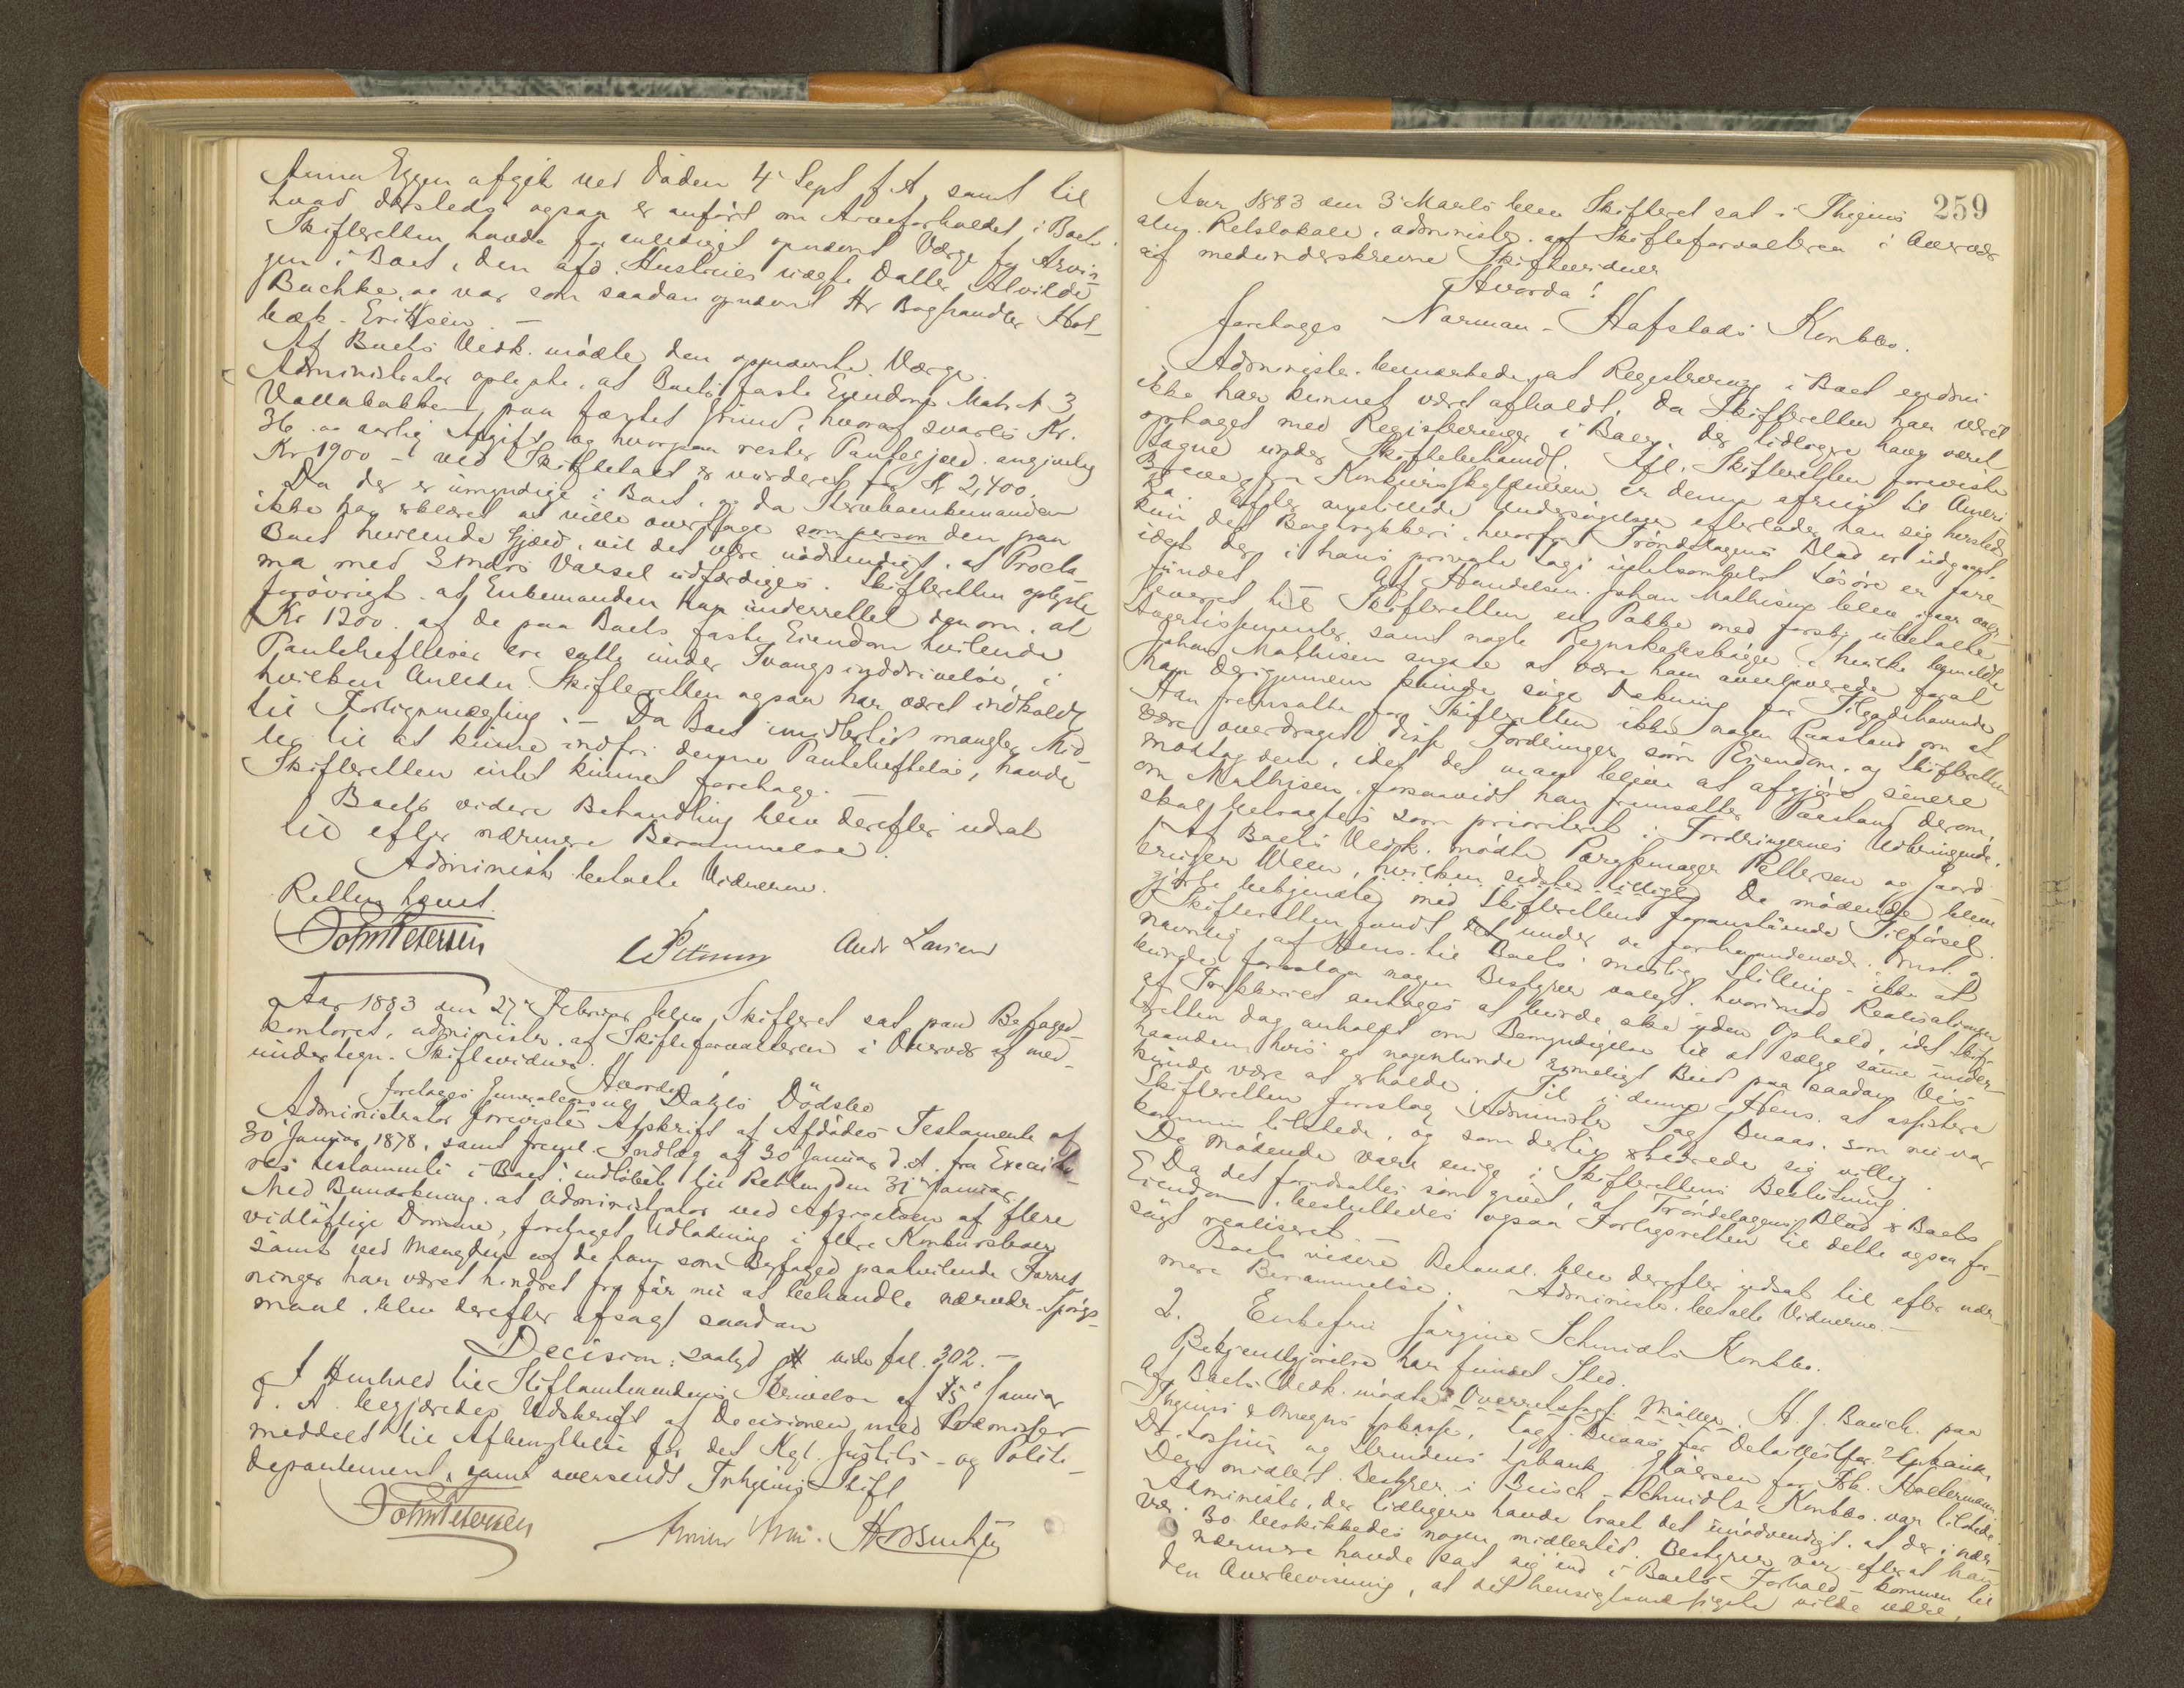 Anna Eggen afgik ved Døden 4 Sept f. A, samt til
hvad dersteds ogsaa er anført om Arveforholdet i Boet.
Skifteretten havde for anlediget opnævnt Værge for Arvin
gen i Boet, den afd. Hustrues uægte Datter Alvilde
Buchke, og var som saadan opnævnt Hr Boghandler Hol-
bæk-Eriksen. —
Af Boets Vedk. mødte den opnævnte Værge.
Administrator oplyste, at Boets faste Eiendom Matr. N 3
Vollabakken paa fæstet Grund, hvoraf svares Kr.
36. aa aarlig Afgift og hvorpaa rester Pantegjæld angivelig
Kr 1900 - ved Skiftetaxt er vurderet for Kr 2,400.
Da der er umyndige i Boet, og da Stervboenkemanden
ikke har erklæret at ville overtage som person den paa
Boet hvilende Gjæld, vil det være nødvendigt, at Procla
ma med 3 Mdrs Varsel udfærdiges. Skifteretten oplyste
forøvrigt, at Enkemanden har underrettet den om, at
Kr 1200. af de paa Boets faste Eiendom hvilende
Panteheftelser ere satte under Tvangsinddrivelse, i
hvilken Anledn. Skifteretten ogsaa har været indkaldt
til Forligsmægling. — Da Boet imidlertid mangler Mid-
ler til at kunne indfri denne Panteheftelse, havde
Skifteretten intet kunnet foretage. —
Boets videre Behandling blev derefter udsat
til efter nærmere Berammelse.
Administr. betalte Vidnerne.
Retten hævet.
John Petersen
Andr Larsen
Aar 1883 den 27 Februar blev Skifteret sat paa Byfoged-
kontoret, administr. af Skifteforvalteren i Overvær af med-
undertegn. Skiftevidner.
Hvorda!
foretages Generalconsul Dahls Dødsbo
Administrator fremviste Afskrift af Afdødes Testamente af
30 Januar 1878, samt freml. Indlæg af 30 Januar d. A. fra Executo
res testamenti i Boet, indløbet til Retten den 31 Januar
Med Bemærkning, at Administrator ved Afgjørelsen af flere
vidløftige Domme, foretaget Udlodning i flere Konkursboer
samt ved Mængden af de ham som Byfoged paahvilende Forret-
ninger har været hindret fra før nu at behandle nærvær. Spørgs-
maal, blev derefter afsagt saadan
Decision: saalyd vide fol. 302. —
I Henhold til Stiftamtmandens Skrivelse af 15 Januar
d. A. begjæredes Udskrift af Decisionen med Præmisser
meddelt til Afbenyttelse for det Kgl. Justits- og Politi-
departement, samt oversendt Trhjems Stift
John Petersen
259
Aar 1883 den 3 Marts blev Skifteret sat i Thjems
alm. Retslokale, administr. af Skifteforvalteren i Overvær
af medunderskrevne Skiftevidner
Hvorda!
foretages Norman-Hafstads Konkbo.
Administr. bemærkede, at Registrering i Boet endnu
ikke har kunnet været afholdt, da Skifteretten har været
optaget med Registreringer i Boer, der tidligere have været
tagne under Skiftebehandl. Ifl. Skifteretten foreviste
Breve fra Konkursskyldneren, er denne afreist til Ameri
ka. Efter anstillede Undersøgelser efterlader han sig hersteds
kun det Bogtrykkeri, hvorfra Trøndelagens Blad er udgaaet,
idet der i hans private Logi intetsomhelst Løsøre er fore-
fundet. Af Handelsm. Johan Mathisen blev over-
leveret til Skifteretten en Pakke med forskj. ubetalte
Avertissementer samt nogle Regnskabsbøger, hvilke bemeldte
Johan Mathisen angave at være ham overleverede foratat
han derigjennem kunde søge Dækning for Tilgodehavende
Han fremsatte for Skifteretten ikke nogen Paastand om at
være overdraget disse Fordringer som Eiendom, og Skifteretten
modtog dem, idet det maa blive at afgjøre senere
om Mathisen, forsaavidt han fremsætter Paastand derom,
skal betragtes som prioriteret i Fordringernes Udbringende.
Af Boets Vedk. mødte Parysmager Pettersen og Gaard-
bruger Ween, hvilken sidste tillige De mødende blev
gjorte bekjendte med Skifterettens foranstaaende Tilførsel.
Skifteretten fandt under de forhaandenvær. Omst. og
navnlig af Hens. til Boets mislige Stilling - ikke at
burde foreslaa nogen Bestyrer valgt, hvorimod Realisationen
af Trykkeriet antages at burde ske uden Ophold, idet Skifte-
retten dog anholdt om Bemyndigelse til at sælge samme under-
haanden, hvis et nogenlunde rimeligt Bud paa saadan Vis
kunde være at erholde. Til i denne Hens. at assistere
Skifteretten foreslog Administr. Sagf. Buaas, som nu var
kommen tilstede, og som dertil erklærede sig villig.
De Mødende vare enige i Skifterettens Beslutning.
Da det forudsattes som givet, at Trøndelagens Blad er Boets
Eiendom, besluttedes ogsaa Forlagsretten til dette ogsaa for-
søgt realiseret. —
Boets videre Behandl. blev derefter udsat til efter nær-
mere Berammelse. Administr. betalte Vidnerne. —
2. Enkefru Jørgine Schmidts Konkbo.
Bekjendtgjørelse har fundet Sted.
Af Boets Vedk. mødte: Overretssagf. Møller, H. J. Bauck paa
Thjems & Omegns Spkasse, Sagf. Buaas
og Strindens Spbank
Den midlert. Bestyrer i Busch-Schmidts Konkbo. var tilstede.
Administr., der tidligere havde troet det unødvendigt, at der i nær
vær. Bo beskikkedes nogen midlertid. Bestyrer, var efterat han
nærmere havde sat sig ind i Boets Forhold - kommen til
den Overbevisning, at det hensigtsmæssigste vilde være,